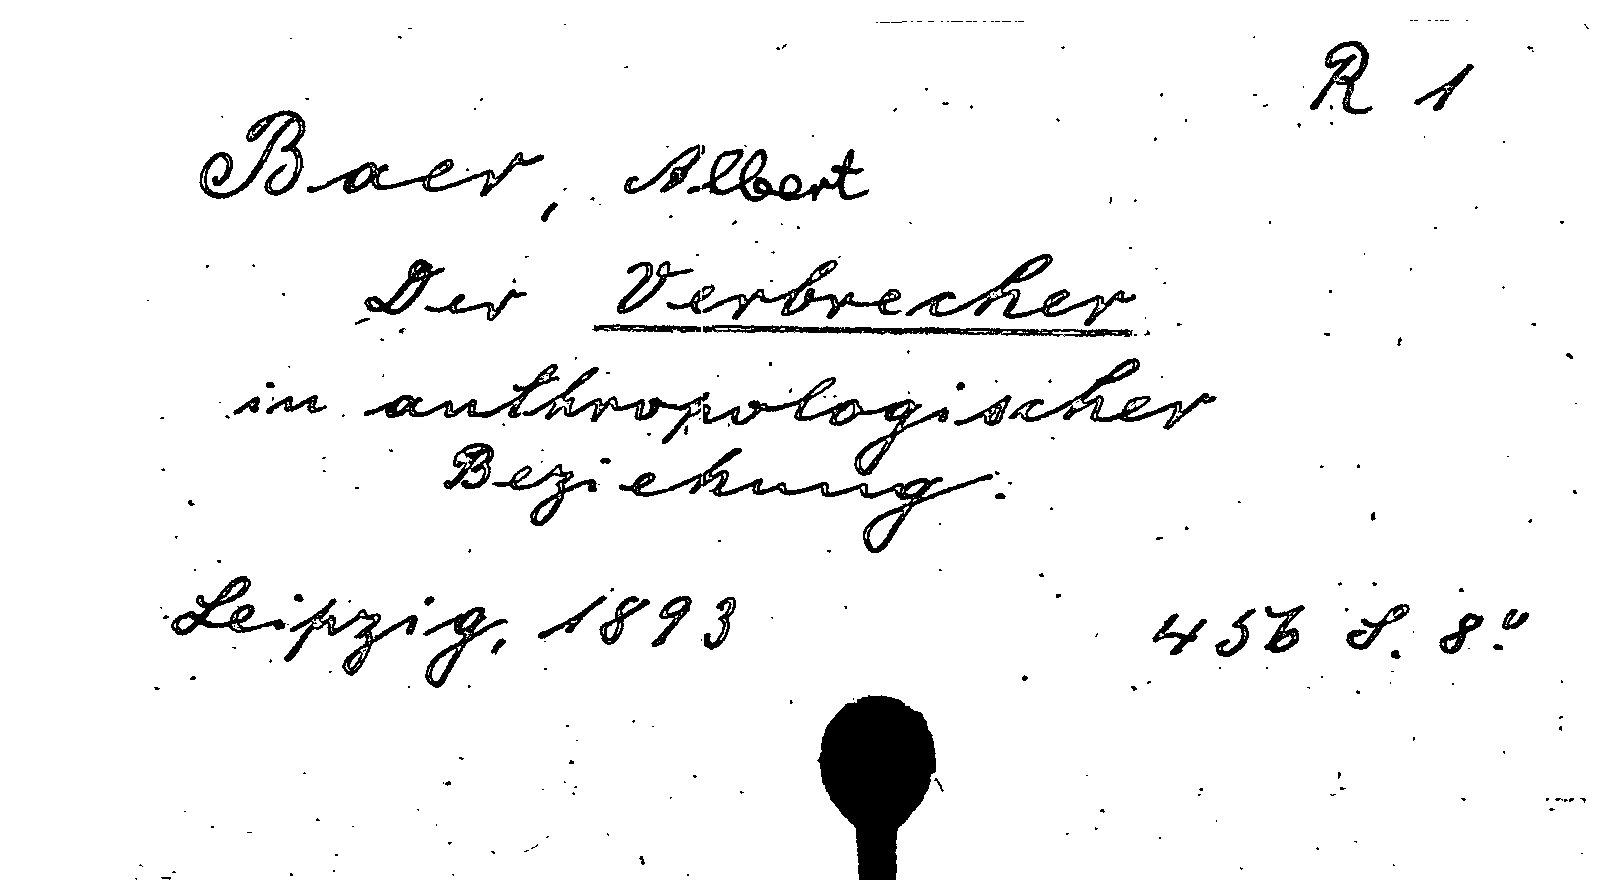 R 1
Baer, Albert
Der Verbrecher
in anthropologischer
Beziehung.
Leipzig, 1893 456 S. 8.°